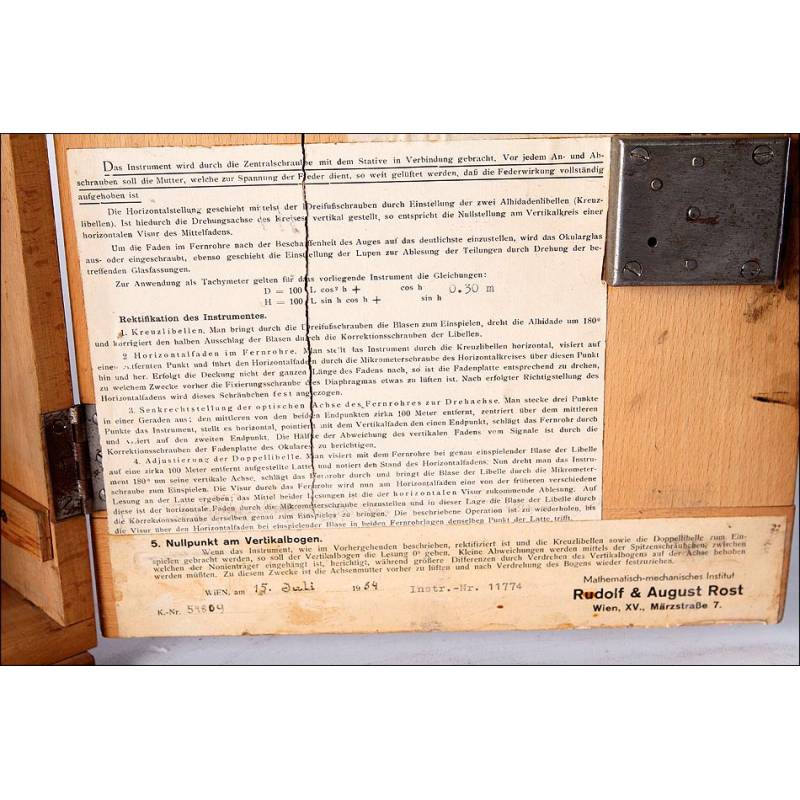 Das Instrument wird durch die Zentralschraube mit dem Stative in Verbindung gebracht. Vor jedem An- und Ab-
schrauben soll die Mutter, welche zur Spannung der Feder dient, so weit gelüftet werden, daß die Federwirkung vollständig
aufgehoben ist
Die Horizontalstellung geschieht mittelst der Dreifußschrauben durch Einstellung der zwei Alhidadenlibellen (Kreuz-
libellen). Ist hiedurch die Drehungsachse des Kreises vertikal gestellt, so entspricht die Nullstellung am Vertikalkreis einer
horizontalen Visur des Mittelfadens.
Um die Faden im Fernrohre nach der Beschaffenheit des Auges auf das deutlichste einzustellen, wird das Okularglas
aus- oder eingeschraubt, ebenso geschieht die Einstellung der Lupen zur Ablesung der Teilungen durch Drehung der be-
treffenden Glasfassungen.
Zur Anwendung als Tachymeter gelten für das vorliegende Instrument die Gleichungen:
D = 100 L cos² h + cos h 0.30 m
H = 100 L sin h cos h + sin h
Rektifikation des Instrumentes.
1. Kreuzlibellen. Man bringt durch die Dreifußschrauben die Blasen zum Einspielen, dreht die Alhidade um 180°
und korrigiert den halben Ausschlag der Blasen durch die Korrektionsschrauben der Libellen.
2 Horizontalfaden im Fernrohre. Man stellt das Instrument durch die Kreuzlibellen horizontal, visiert auf
einen entfernten Punkt und führt den Horizontalfaden durch die Mikrometerschraube des Horizontalkreises über diesen Punkt
hin und her. Erfolgt die Deckung nicht der ganzen Länge des Fadens nach, so ist die Fadenplatte entsprechend zu drehen,
zu welchem Zwecke vorher die Fixierungsschraube des Diaphragmas etwas zu lüften ist. Nach erfolgter Richtigstellung des
Horizontalfadens wird dieses Schräubchen fest angezogen.
3. Senkrechtstellung der optischen Achse des Fernrohres zur Drehachse. Man stecke drei Punkte
in einer Geraden aus; den mittleren von den beiden Endpunkten zirka 100 Meter entfernt, zentriert über dem mittleren
Punkte das Instrument, stellt es horizontal, pointiert mit dem Vertikalfaden den einen Endpunkt, schlägt das Fernrohr durch
und visiert auf den zweiten Endpunkt. Die Hälfte der Abweichung des vertikalen Fadens vom Signale ist durch die
Korrektionsschrauben der Fadenplatte des Okulares zu berichtigen.
4. Adjustierung der Doppellibelle. Man visiert mit dem Fernrohre bei genau einspielender Blase der Libelle
auf eine zirka 100 Meter entfernt aufgestellte Latte und notiert den Stand des Horizontalfadens. Nun dreht man das Instru-
ment 180° um seine vertikale Achse, schlägt das Fernrohr durch und bringt die Blase der Libelle durch die Mikrometer-
schraube zum Einspielen. Die Visur durch das Fernrohr wird nun am Horizontalfaden eine von der früheren verschiedene
Lesung an der Latte ergeben; das Mittel beider Lesungen ist die der horizontalen Visur zukommende Ablesung. Auf
diese ist der horizontale Faden durch die Mikrometerschraube einzustellen und in dieser Lage die Blase der Libelle durch
die Korrektionsschraube derselben genau zum Einspielen zu bringen. Die beschriebene Operation ist zu wiederholen, bis
die Visur über den Horizontalfaden bei einspielender Blase in beiden Fernrohrlagen denselben Punkt der Latte trifft.
5. Nullpunkt am Vertikalbogen.
Wenn das Instrument, wie im Vorhergehenden beschrieben, rektifiziert ist und die Kreuzlibellen sowie die Doppellibelle zum Ein-
spielen gebracht werden, so soll der Vertikalbogen die Lesung 0° geben. Kleine Abweichungen werden mittels der Spitzenschräubchen, zwischen
welchen der Nonienträger eingehängt ist, berichtigt, während größere Differenzen durch Verdrehen des Vertikalbogens auf der Achse behoben
werden müßten. Zu diesem Zwecke ist die Achsenmutter vorher zu lüften und nach Verdrehung des Bogens wieder festzuziehen.
WIEN, am 15. Juli 1934 Instr.-Nr. 11774
K.-Nr.
Mathematisch-mechanisches Institut
Rudolf & August Rost
Wien, XV., Märzstraße 7.